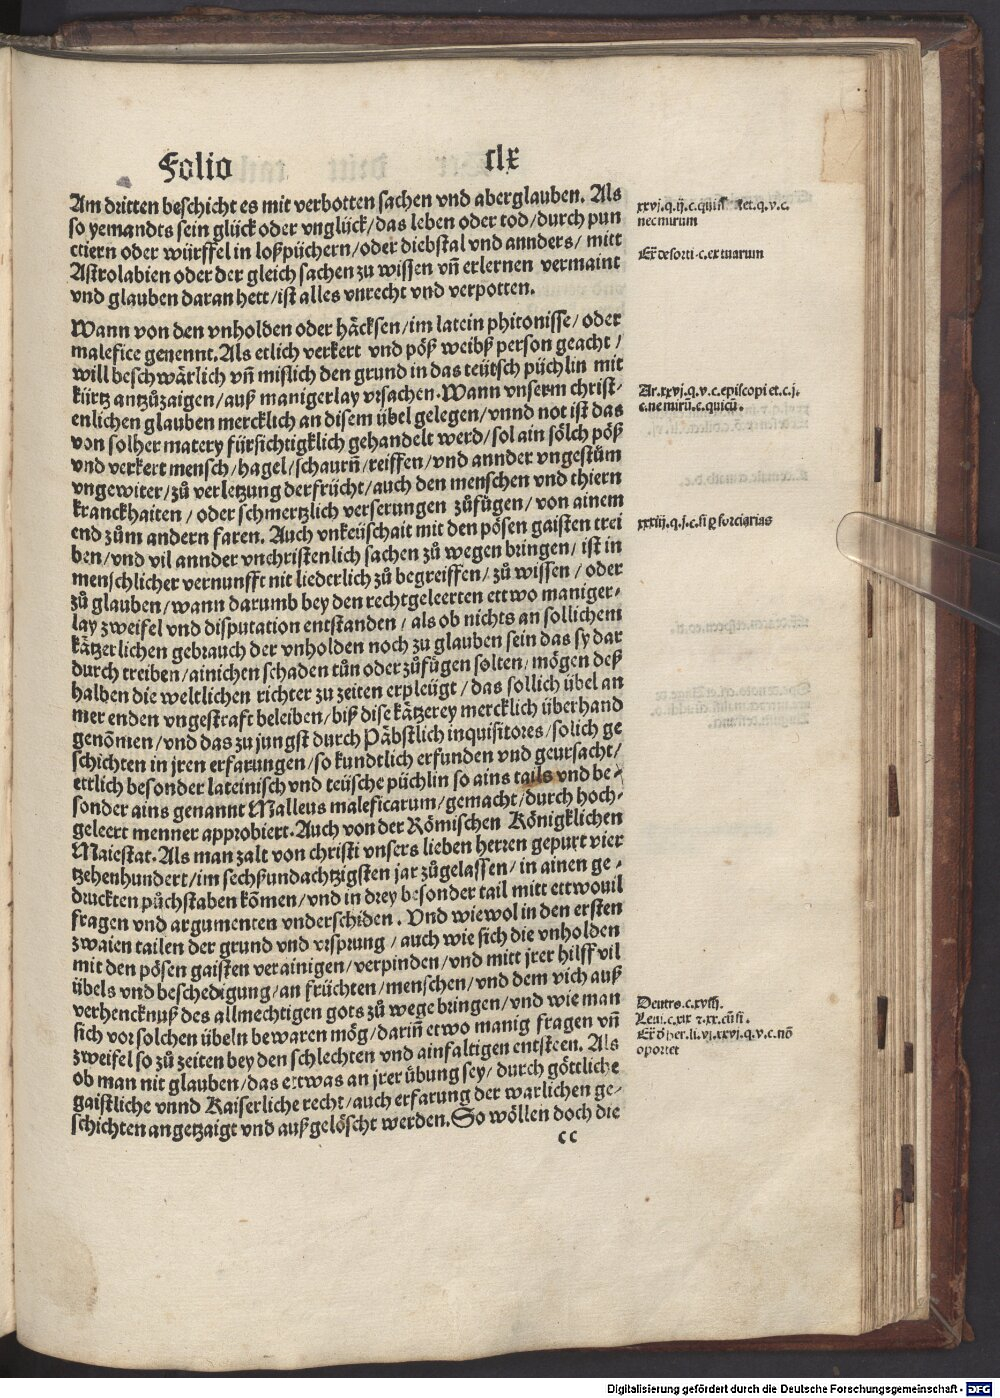 Folio clx
Am dritten beschicht es mit verbotten sachen vnd aberglauben. Als
so yemandts sein glück oder vnglück/das leben oder tod/durch pun
cttiern oder würffel in loßpüchern/oder diebstal vnd annders/ mitt
Astrolabien oder der gleich sachen zu wissen vñ erlernen vermaint
vnd glauben daran hett/ist alles vnrecht vnd verpotten.
Wann von den vnholden oder häcksen/im latein phitonisse/oder
malefice genennt. Als etlich verkert vnd pöß weibß person geacht/
will beschwärlich vñ mislich den grund in das teütsch püchlin mit
kürtz antzůzaigen/auß manigerlay vrsachen. Wann vnserm christ-
enlichen glauben mercklich an disem übel gelegen/vnnd not ist das
von solher matery fürsichtigklich gehandelt werd/sol ain sölch pöß
vnd verkert mensch/hagel/schaurñ/reiffen/vnd annder vngestüm
vngewiter/zů verletzung der frücht/auch den menschen vnd thiern
kranckhaiten/oder schmertzlich verserungen zůfügen/von ainem
end zům andern faren. Auch vnkeüschait mit den pösen gaisten trei
ben/vnd vil annder vnchristenlich sachen zů wegen bringen/ist in
menschlicher vernunfft nit liederlich zů begreiffen/zů wissen/oder
zů glauben/wann darumb bey den rechtgeleerten ettwo maniger-
lay zweifel vnd disputation entstanden/als ob nichts an sollichem
kätzerlichen gebrauch der vnholden noch zu glauben sein das sy dar
durch treiben/ainichen schaden tůn oder zůfügen solten/mögen deß
halben die weltlichen richter zu zeiten erpleügt/das sollich übel an
mer enden vngestraft beleiben/biß dise kätzerey mercklich überhand
genõmen/vnd das zu jungst durch Päbstlich inquisitores/solich ge
schichten in jren erfarungen/so kundtlich erfunden vnd geursacht/
ettlich besonder lateinisch vnd teüsche püchlin so ains tails vnd be-
sonder ains genannt Malleus maleficarum/gemacht/durch hoch-
geleert menner approbiert. Auch von der Römischen Königklichen
Maiestat. Als man zalt von christi vnsers lieben herren gepurt vier
tzehenhundert/im sechßundachtzigsten jar zůgelassen/in ainen ge-
druckten půchstaben kõmen/vnd in drey besonder tail mitt ettwouil
fragen vnd argumenten vnderschiden. Vnd wiewol in den ersten
zwaien tailen der grund vnd vrsprung/auch wie sich die vnholden
mit den pösen gaisten verainigen/verpinden/vnd mitt jrer hilff vil
übels vnd beschedigung/an früchten/menschen/vnd dem vich auß
verhencknuß des allmechtigen gots zů wege bringen/vnd wie man
sich vor solchen übeln bewaren mög/dariñ etwo manig fragen vñ
zweifel so zů zeiten bey den schlechten vnd ainfaltigen entsteen. Als
ob man nit glauben/das ettwas an jrer übung sey/durch göttliche
gaistliche vnnd Kaiserliche recht/auch erfarung der warlichen ge-
schichten angetzaigt vnd außgelöscht werden. So wöllen doch die
cc
xxvj.q.ij.c.quis et.q.v.c.
nec mirum
Ex de sorti.c.ex tuarum
Ar.xxvj.q.v.c.episcopi et.c.j.
c.ne mirũ.c.quicũ.
xxxiij.q.j.c.si ꝑ sorciarias
Deutro.c.xviij.
Leui.c.xix ⁊.xx.
li.vj.xxvj.q.v.c.nõ
oportet
Digitalisierung gefördert durch die Deutsche Forschungsgemeinschaft - DFG